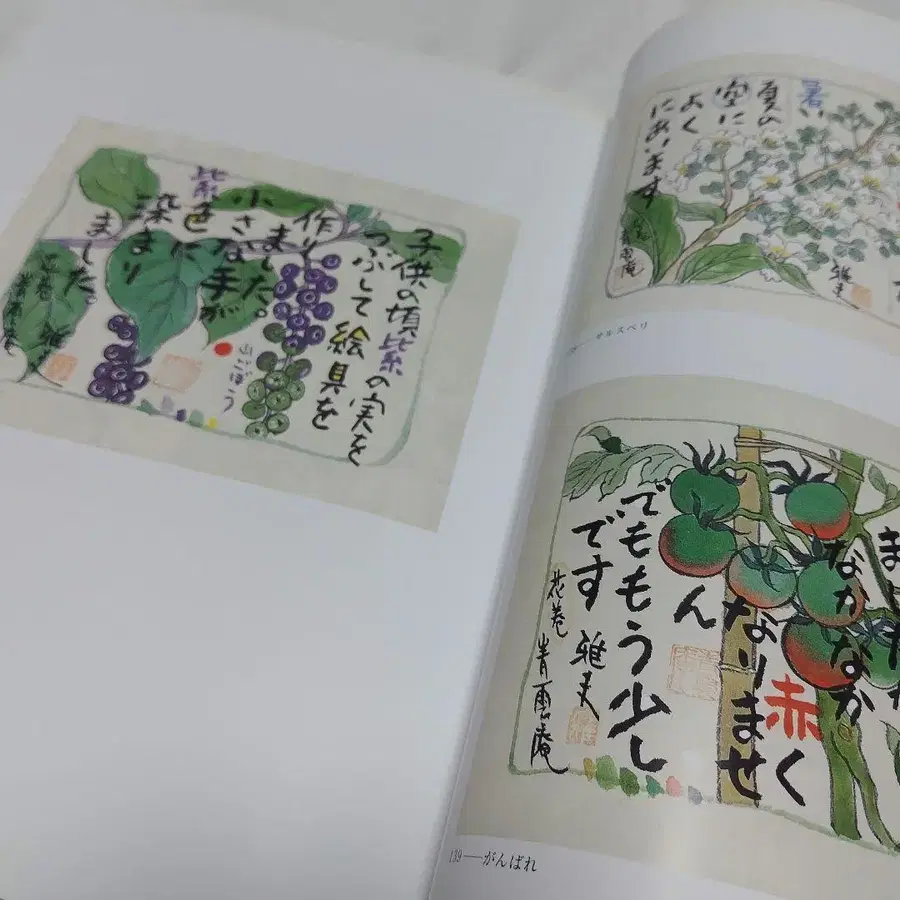 子供の頃紫の実を
つぶして絵具を
作りました。
小さな手が
紫色に
染まり
ました。
山ごぼう
暑い
夏の
空に
よく
にあいます
雅夫
サルスベリ
なかなか
赤く
なりませ
ん
でももう少し
です
花巻 雅夫
青雲庵
139──がんばれ